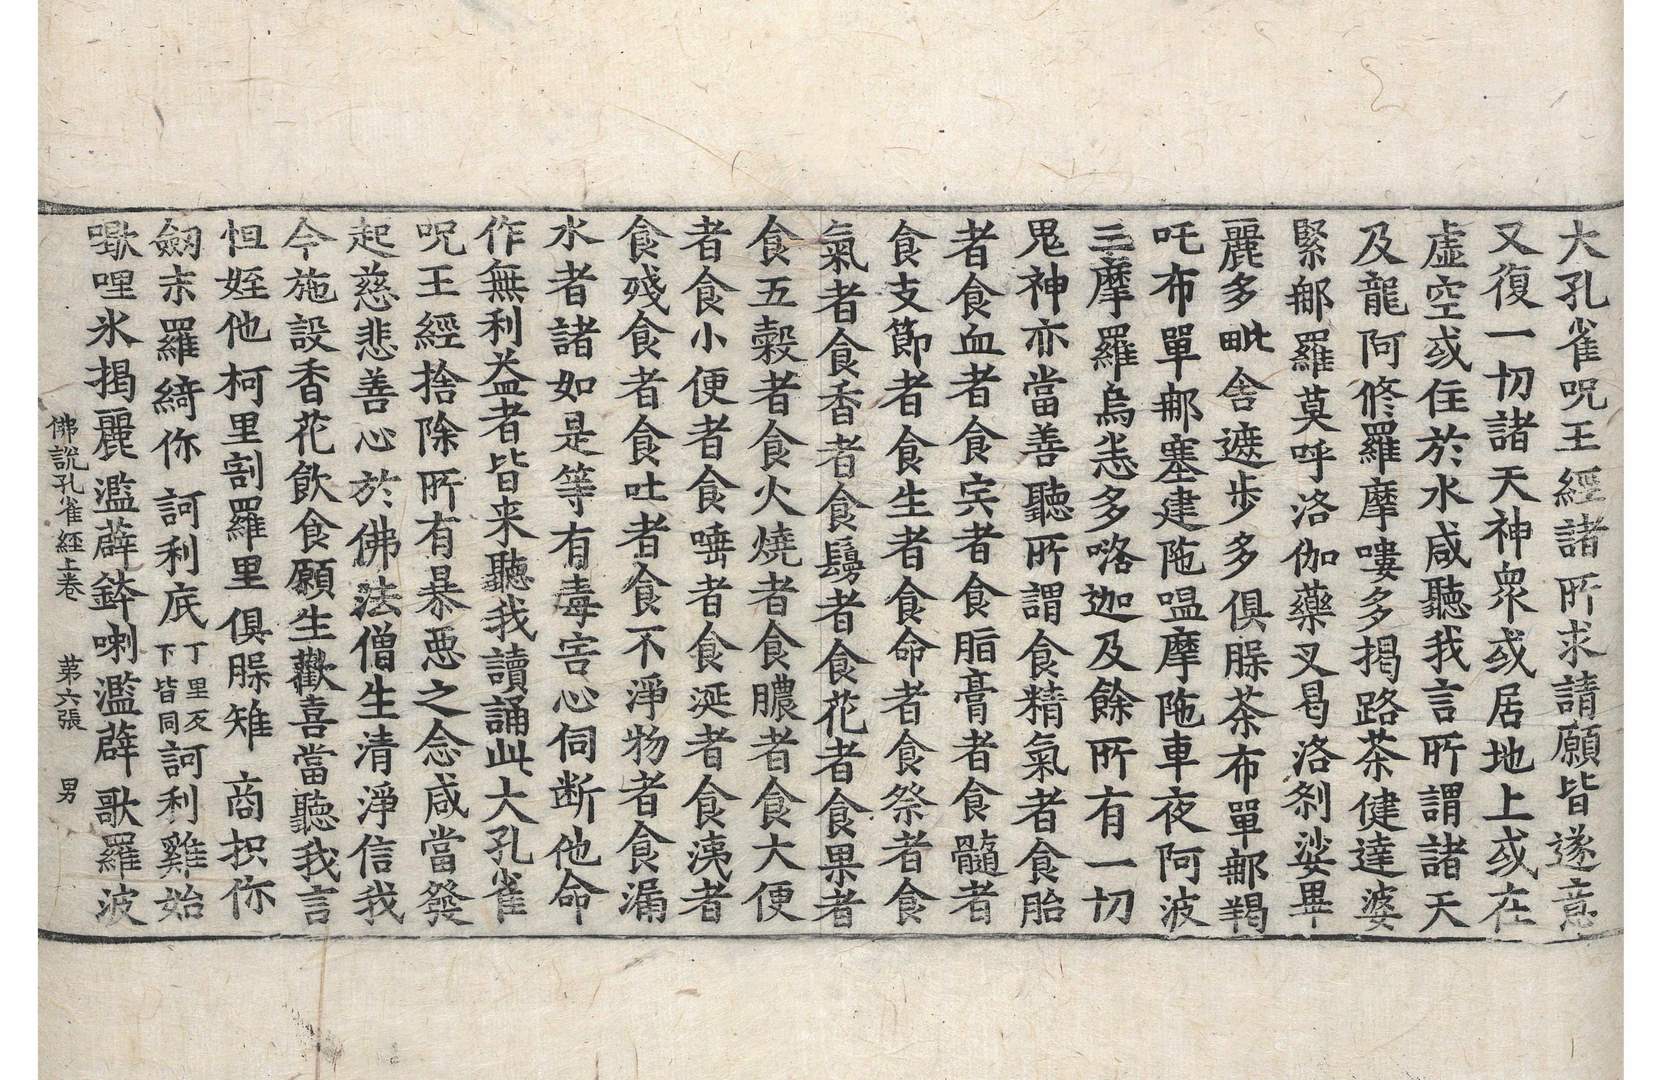 大孔雀呪王經諸所求請願皆遂意
又復一切諸天神衆或居地上或在
虛空或住於水咸聽我言所謂諸天
及龍阿修羅摩嘍多揭路荼健達婆
緊𨚗羅莫呼洛伽藥叉曷洛剎娑畢
麗多毗舍遮步多俱腂荼布單𨚗羯
吒布單𨚗塞建陁嗢摩陁車夜阿波
三摩羅烏恙多咯迦及餘所有一切
鬼神亦當善聽所謂食精氣者食胎
者食血者食宍者食脂膏者食髓者
食支節者食生者食命者食祭者食
氣者食香者食鬘者食花者食果者
食五穀者食火燒者食膿者食大便
者食小便者食唾者食涎者食洟者
食殘食者食吐者食不淨物者食漏
水者諸如是等有毒害心伺断他命
作無利益者皆来聽我讀誦此大孔雀
呪王經捨除所有暴惡之念咸當發
起慈悲善心於佛法僧生清淨信我
今施設香花飲食願生歡喜當聽我言
怛姪他柯里割羅里俱腂雉商抧你
劔末羅綺你訶利底丁里反下皆同訶利雞始
嚟哩氷揭麗濫薜鉢喇濫薜歌羅波
佛說孔雀經上卷 苐六張 男